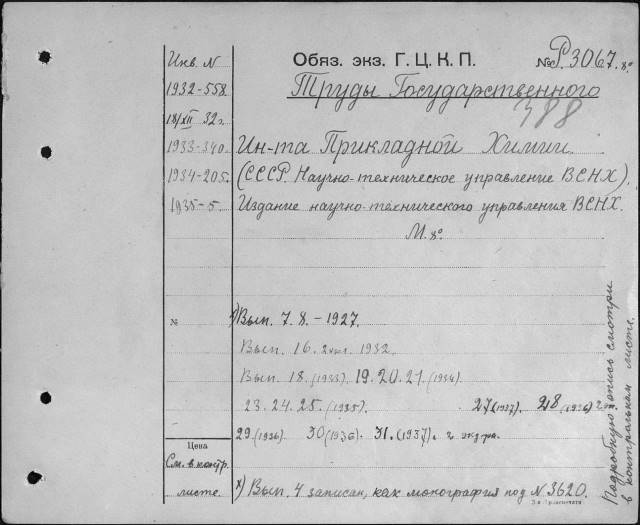 Инв. N
1932-558
18/XII 32г.
1933-340.
1934-205.
1935-5.
Обяз. экз. Г.Ц.К.П. № Р.3067. 8°
Труды Государственного
388
Ин-та Прикладной Химии
(СССР. Научно-техническое управление ВСНХ).
Издание научно-технического управления ВСНХ.
М. 8°
№
х) Вып. 7. 8. - 1927.
Вып. 16. 2 экз. 1932.
Вып. 18. (1933). 19. 20. 21. (1934).
23. 24. 25. (1935). 27 (1937) 28 (1936)
29 (1936). 30 (1936). 31. (1937). 2 экз.
Цена
См. в контр.
листе.
х) Вып. 4 записан, как монография под N. 3620.
Подробную запись смотри
в контрольном листе.